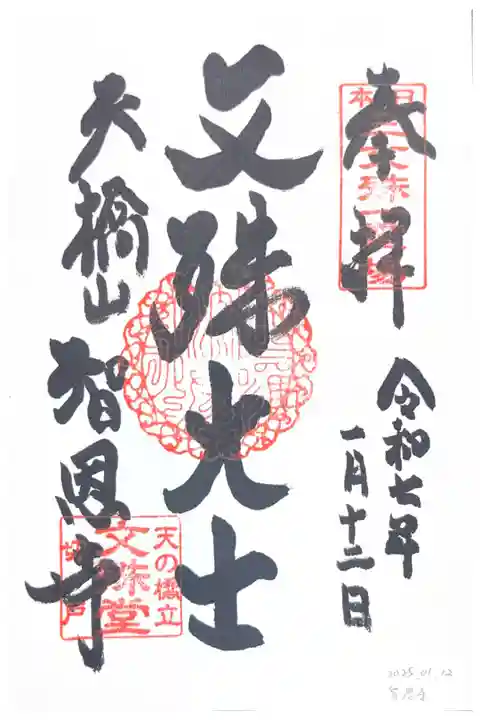 奉拝
日本三文殊
令和七年
一月十二日
文殊大士
天橋山
智恩寺
天の橋立
文殊堂
2025.01.12
智恩寺